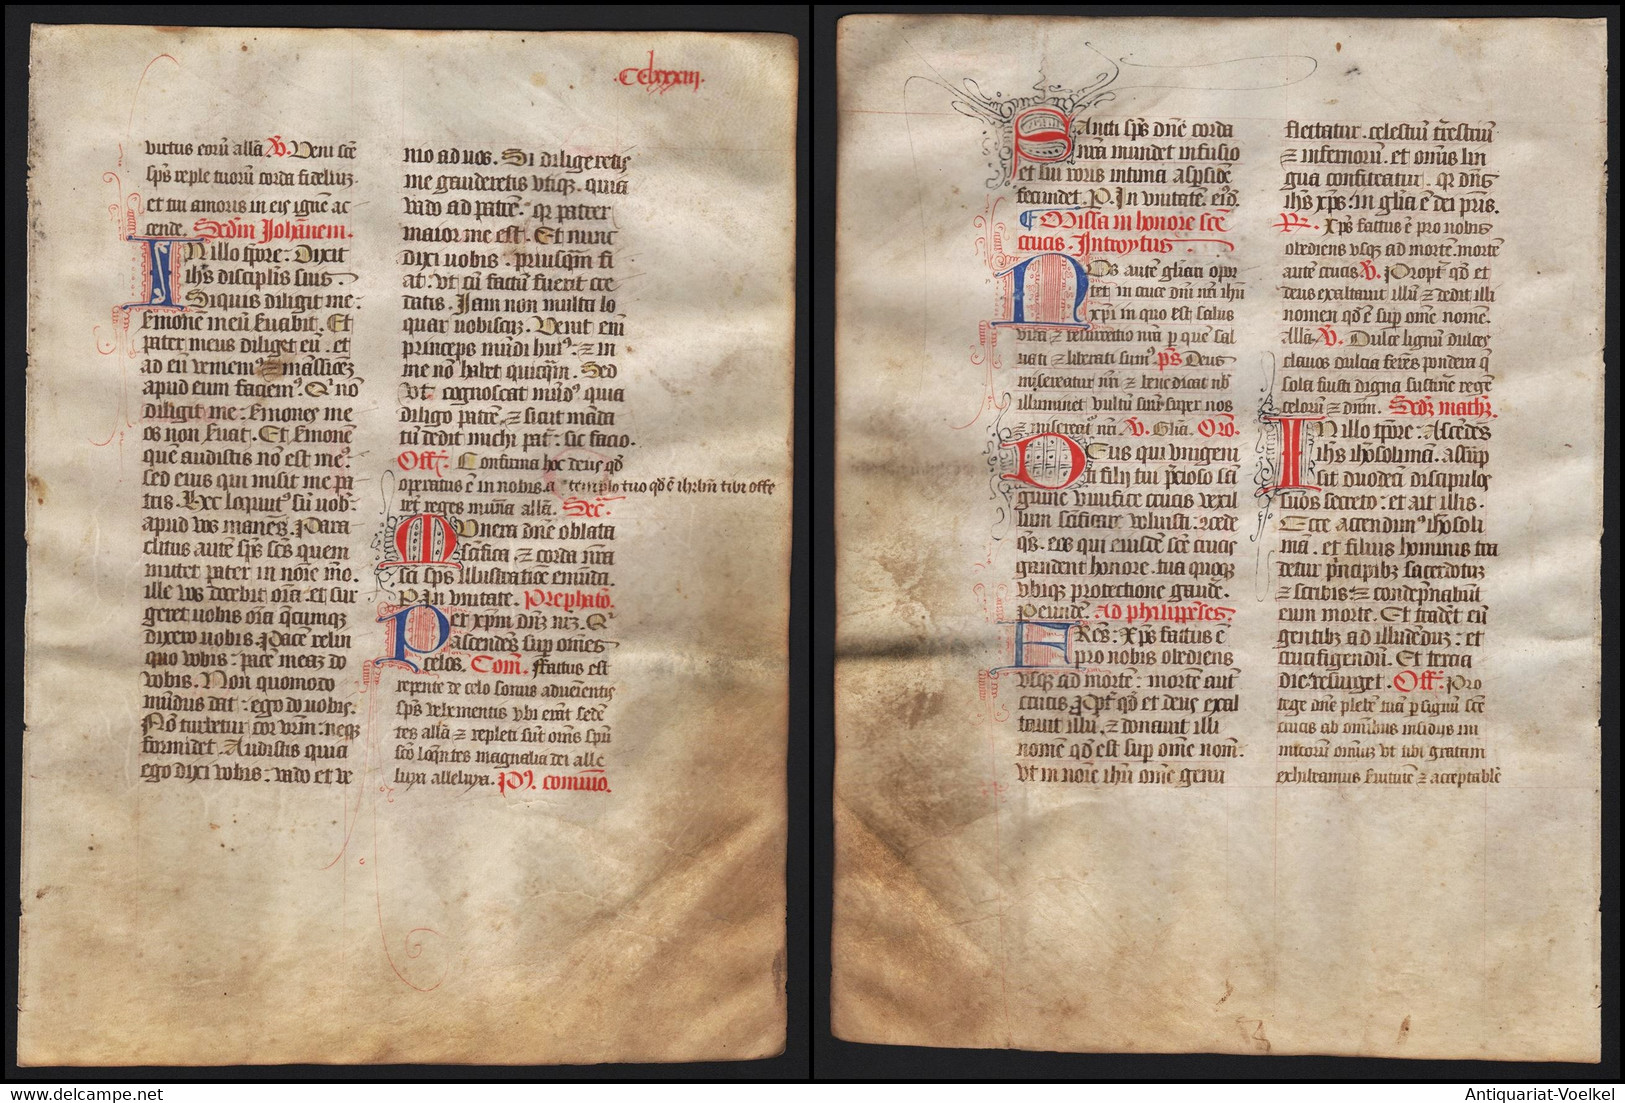 CClxxxiij.
virtus eorū allā. V̄. Veni sc̄e
sp̄s reple tuorū corda fideliuz
et tui amoris in eis ignē ac
cende. Scdm Johānem.
IN illo tp̄ore: Dixit
ih̄s discipl̄is suis
Siquis diligit me:
s̄monē meū s̄uabit. Et
pater meus diliget eū. et
ad eū veniemꝰ ⁊ mansionez
apud eum faciemꝰ. Q̇ nō
diligit me: s̄mones me
os non s̄uat. Et s̄monē
quē audistis nō est meꝰ:
sed eius qui misit me pa
tris. Hec locutꝰ sū uob̄.
apud vos manēs. Para
clitus autē sp̄s sc̄s quem
mittet pater in noīe mō.
ille vos docebit oīa: et sug
geret uobis oīa q̄cumqꝫ
dixero uobis. Pacē relin
quo vobis: pacē meaz do
vobis. Non quomodo
mūdus dat: ego do uobis.
Nō turbetur cor vr̄m: neqꝫ
formidet. Audistis quia
ego dixi vobis: vado et ve
nio ad uos. Si diligeretis
me gauderetis vtiqꝫ. quia
vado ad patrē. qr̄ pater
maior me est. Et nunc
dixi uobis. priusq̄m fi
at: vt cū factū fuerit cre
datis. Jam non multa lo
quar uobiscuz. Venit eīm
princeps mūdi huiꝰ: ⁊ in
me nō habet quicq̄m. Sed
vt cognoscat mūdꝰ quia
diligo patrē. ⁊ sicut māda
tū dedit michi pat̄: sic facio.
Off. Confirma hoc deus qd̄
operatus ē in nobis. a templo tuo qd̄ ē ih̄rlm̄ tibi offe
rēt reges mun̄a allā. Sec̄.
MUnera dn̄e oblata
sc̄ifica. ⁊ corda nr̄a
sc̄i sp̄s illustratiōe emūda.
P. In vnitate. Prephatō.
PEr xp̄m dn̄m nr̄z. Q̇
ascendēs sup̄ om̄es
celos. Com̄. Factus est
repente de celo sonus aduenientis
sp̄s vehementis vbi erāt sedē
tes allā ⁊ repleti sūt om̄s sp̄u
sc̄o loq̄ntes magnalia dei alle
luya alleluya. Pꝰ. comūio.
SAncti sp̄s dn̄e corda
nr̄a mundet infusio
et sui roris intima asp̄sōe
fecundet. P. In vnitate. eiꝰd̄.
Missa in honore sc̄e
crucis. Introytus
NOs autē gl̄iari opor
tet in cruce dn̄i nr̄i ih̄u
xp̄i in quo est salus
vita ⁊ resurrectio nr̄a p̱ quē sal
uati ⁊ liberati sumꝰ. p̄s Deus
misereatur nr̄i ⁊ benedicat nob̄
illuminet vultū suū super nos
⁊ misereat̄ nr̄i. V̄. Gl̄ia. Orō.
DEus qui vnigeni
ti filij tui p̄cioso sā
guine viuifice crucis vexil
lum sc̄ificare voluisti: ꝯcede
qs̄. eos qui eiusdē sc̄e crucis
gaudent honore. tua quoqꝫ
vbiqꝫ protectione gaudē.
P. eundē. Ad philippēses.
FRēs: Xp̄s factus ē
pro nobis obediens
vsqꝫ ad mortē: mortē aut
crucis. Pp̄t qd̄ et deus exal
tauit illū. ⁊ donauit illi
nomē qd̄ est sup̄ om̄e nom̄.
Vt in noīe ih̄u om̄e genu
flectatur. celestiū t̄restriū
⁊ infernorū. et om̄is lin
gua confiteatur. qr̄ dn̄s
ih̄s xp̄s: in gl̄ia ē dei pr̄is.
R. Xp̄s factus ē pro nobis
obediens vsqꝫ ad mortē. mortē
autē crucis V̄. Propt̄ qd̄ et
deus exaltauit illū ⁊ dedit illi
nomen qd̄ ē sup̄ om̄e nomē.
Allā. V̄. Dulce lignū dulces
clauos dulcia ferēs pondera q̄
sola fuisti digna sustinē regē
celorū ⁊ dn̄m. Scd̄z math̄z.
IN illo tp̄ore: Ascēdēs
ih̄s ih̄osolima. assūp
sit duodecī discipulos
suos secreto: et ait illis.
Ecce ascendimꝰ ih̄osoli
mā. et filius hominis tra
detur p̄ncipibꝫ sacerdotuz
⁊ scribis: ⁊ condēpnabūt
eum morte. Et tradēt eū
gentibꝫ ad illudēduz: et
crucifigendū. Et tercia
die resurget. Off. Pro
tege dn̄e plebē tuā p̱ signū sc̄e
crucis ab om̄ibus insidijs ini
micorū om̄iuz vt tibi gratam
exhibeamus s̄uitutē ⁊ acceptabilē
Antiquariat-Voelkel